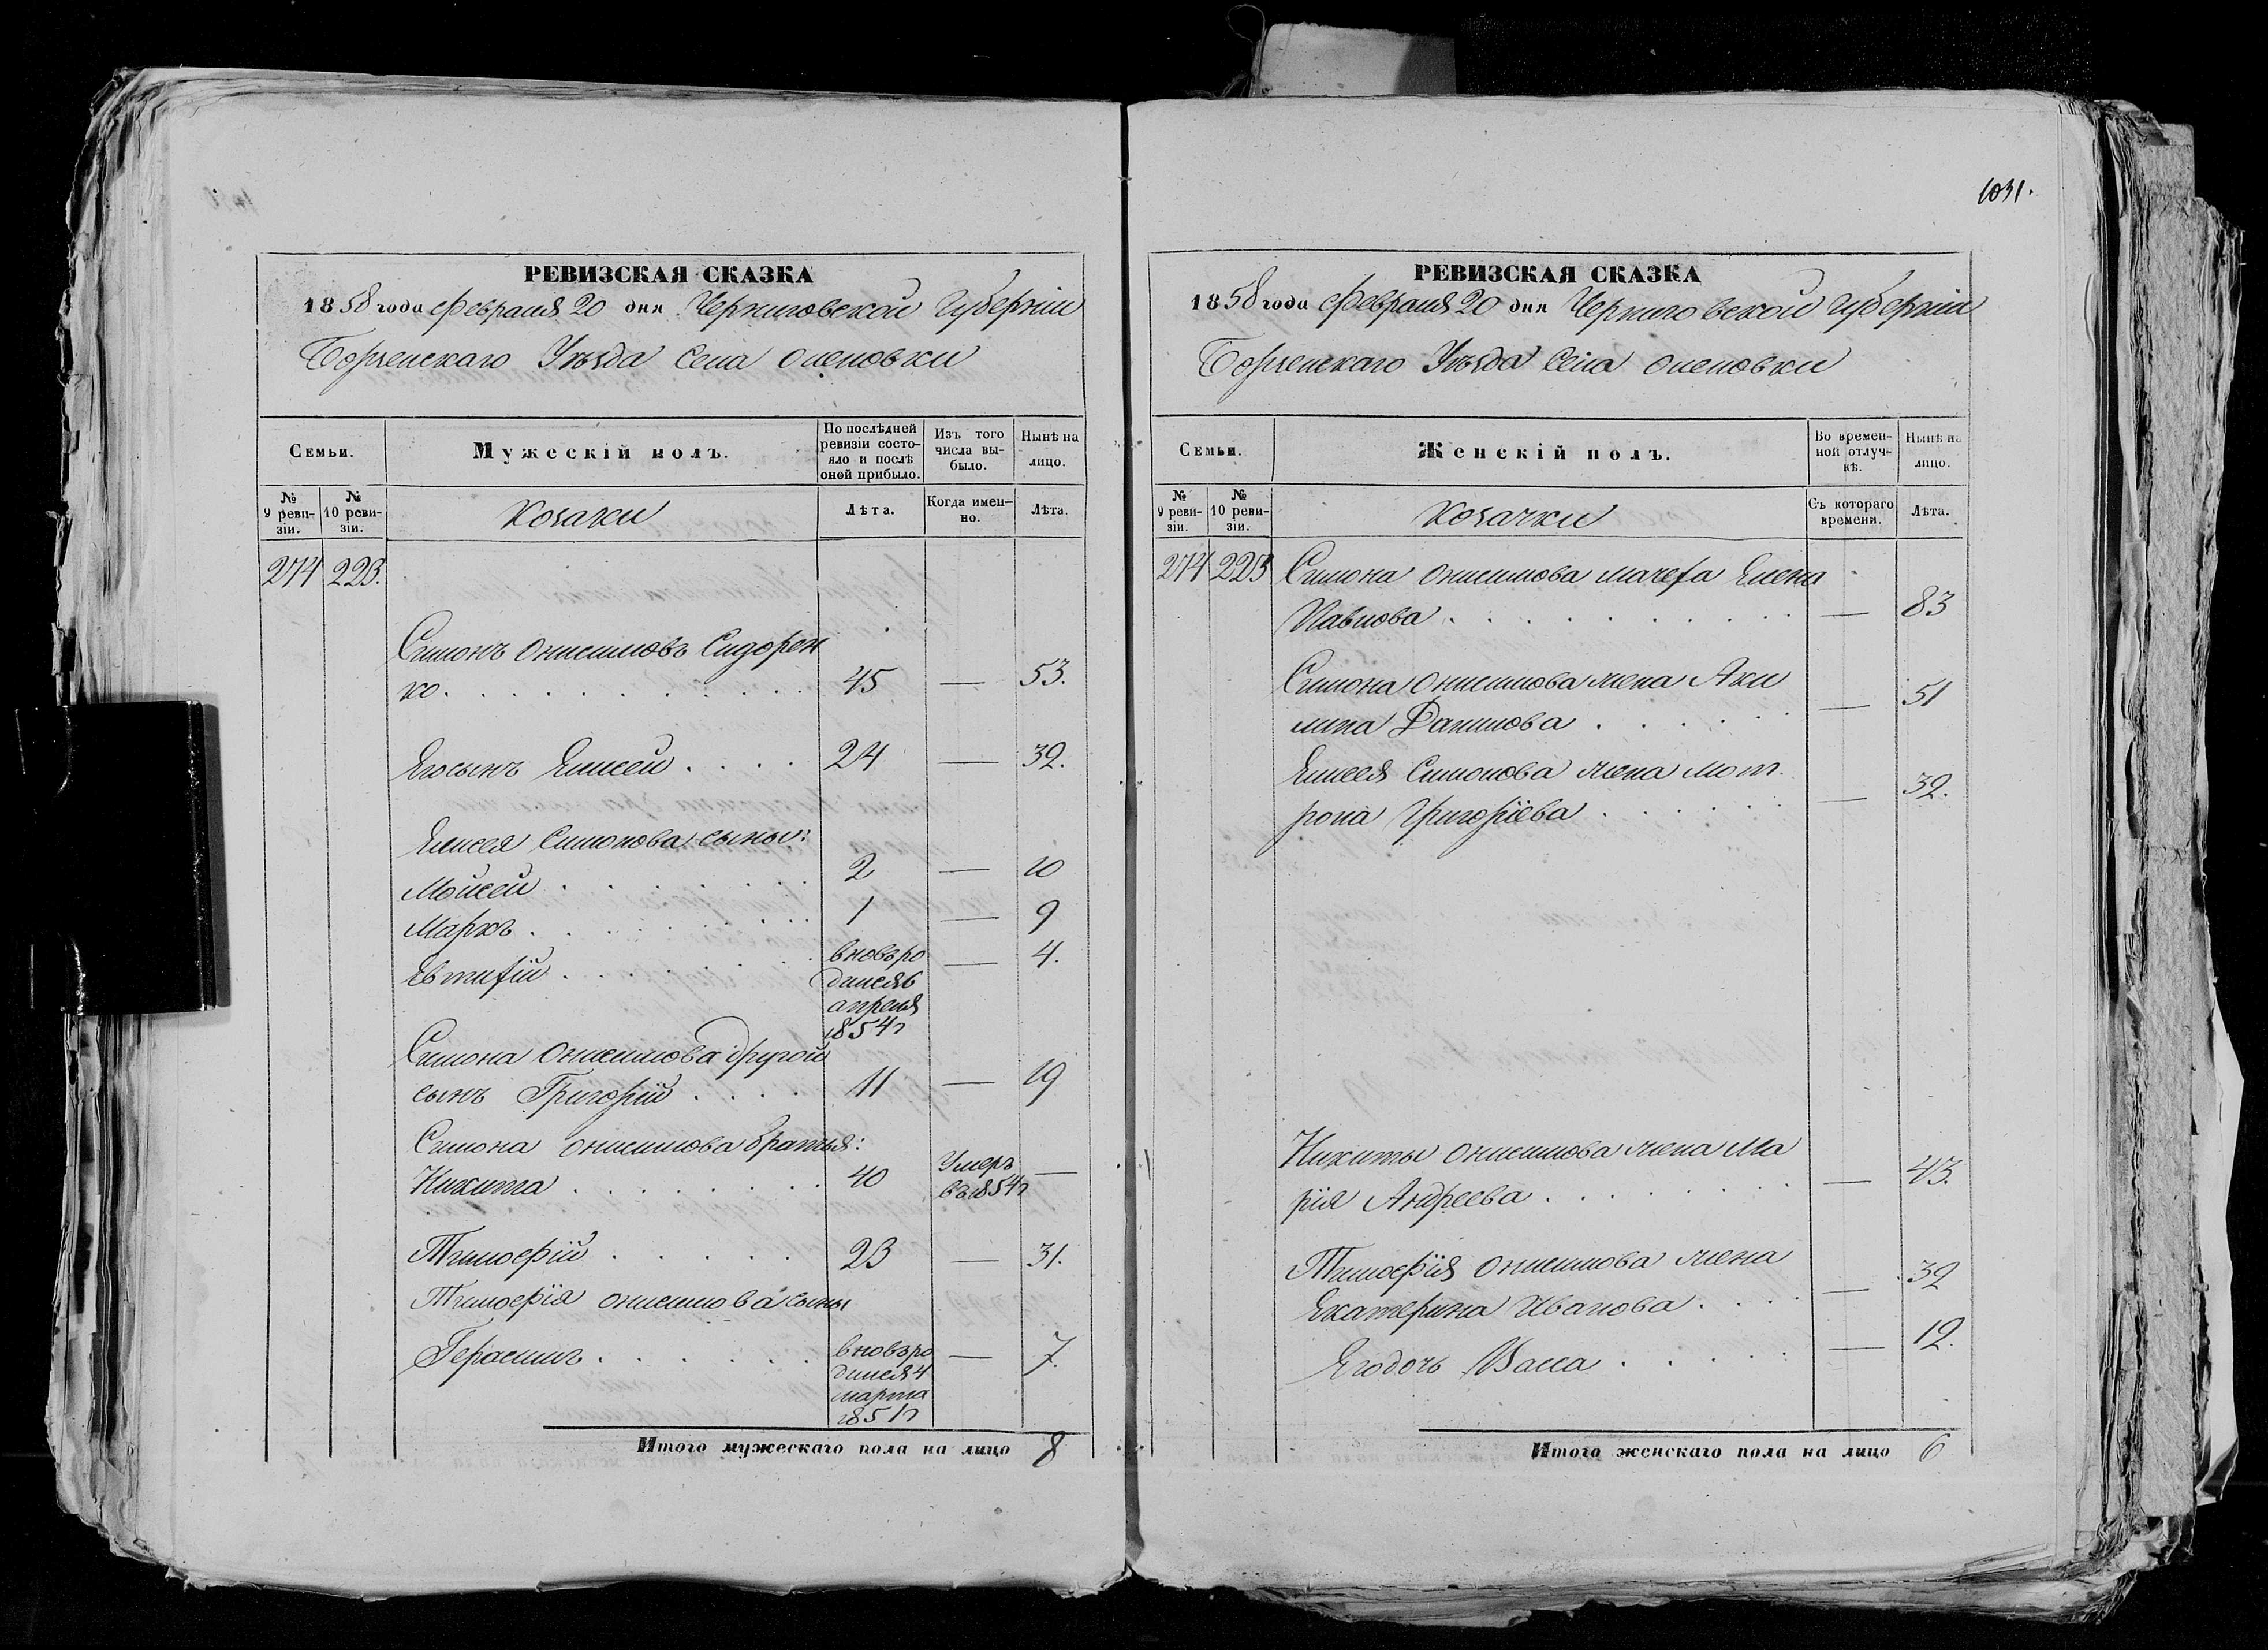 РЕВИЗСКАЯ СКАЗКА
1858 года Февраля 20 дня Черниговской Губерніи
Борзенскаго Уѣзда Села Оленовки
Семьи.
Мужескій полъ.
По послѣдней ревизіи состояло и послѣ оной прибыло.
Изъ того числа выбыло.
Нынѣ на лицо.
№ 9 ревизіи.
№ 10 ревизіи.
Козаки
Лѣта.
Когда именно.
Лѣта.
274 223.
Симонъ Онисимовъ Сидорен
ко 45 — 53.
Его сынъ Елисей 24 — 32.
Елисея Симонова сыны:
Мойсей 2 — 10
Маркъ 1 — 9
Евтифій вновь ро — 4.
дился 6
апреля
1854 г
Симона Онисимова другой
сынъ Григорій 11 — 19
Симона Онисимова братья:
Никита 40 Умеръ —
въ 1854 г
Тимофій 23 — 31.
Тимофія Онисимова сыны
Герасимъ вновь ро — 7.
дился 4
марта
1851 г
Итого мужескаго пола на лицо 8
1031.
РЕВИЗСКАЯ СКАЗКА
1858 года Февраля 20 дня Черниговской Губерніи
Борзенскаго Уѣзда Села Оленовки
Семьи.
Женскій полъ.
Во временной отлучкѣ.
Нынѣ на лицо.
№ 9 ревизіи.
№ 10 ревизіи.
Козачки
Съ котораго времени.
Лѣта.
274 223 Симона Онисимова мачеха Елена
Павлова — 83
Симона Онисимова жена Аки
лина Данилова — 51
Елисея Симонова жена Мот
рона Григоріева — 32.
Никиты Онисимова жена Ма
рія Андреева — 43.
Тимофія Онисимова жена
Екатерина Иванова — 32
Его дочь Васса — 12.
Итого женскаго пола на лицо 6